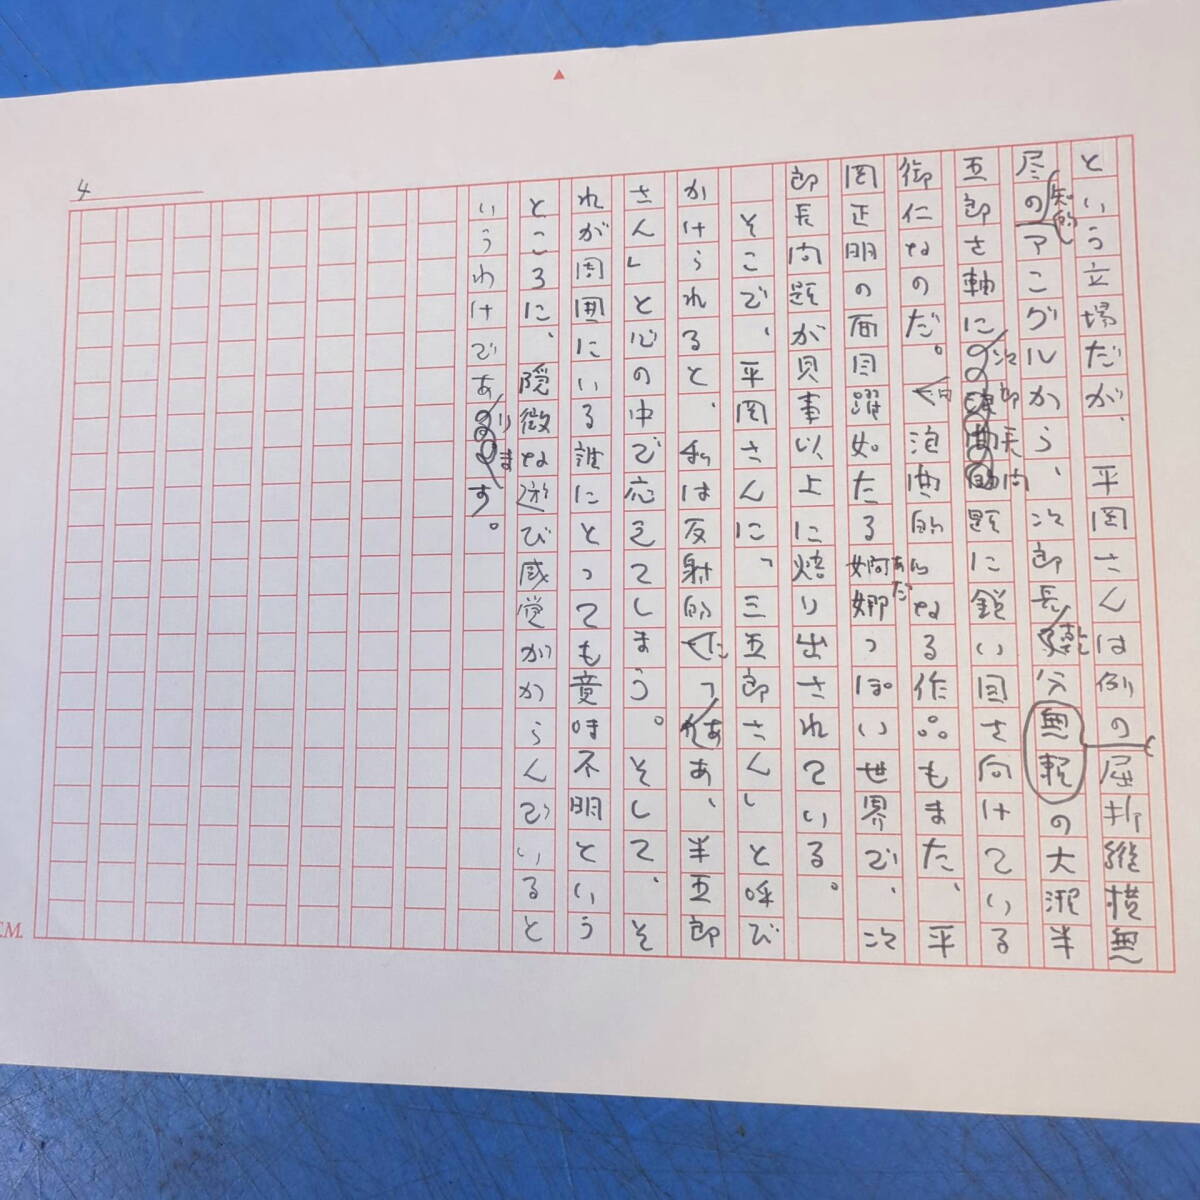 4
という立場だが、平岡さんは例の屈折縦横無
尽の知的アングルから、次郎長乾分無頼の大瀬半
五郎を軸に次郎長問題に鋭い目を向けている
御仁なのだ。泡の的なる作品もまた、平
岡正明の面目躍如たる婀娜っぽい世界で、次
あだ
郎長問題が見事以上に焙り出されている。
そこで、平岡さんに「三五郎さん」と呼び
かけられると、私は反射的に「あああ、半五郎
さん」と心の中で応えてしまう。そして、そ
れが周囲にいる誰にとっても意味不明という
ところに、隠微な遊び感覚がからんでいると
いうわけであります。
C.M.